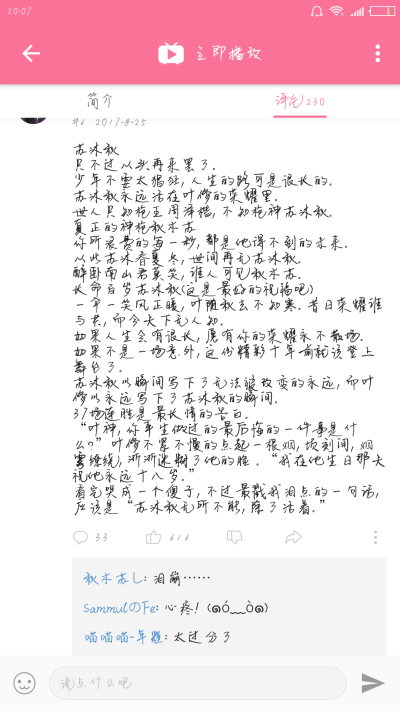 20:07
立即播放
简介
评论230
#6 2017-8-25
苏沐秋
只不过从头再来罢了.
少年不要太猖狂,人生的路可是很长的.
苏沐秋永远活在叶修的荣耀里.
世人只知枪王周泽楷,不知枪神苏沐秋.
真正的神枪秋木苏
你所浪费的每一秒,都是他得不到的未来.
从此苏沐春夏冬,世间再无苏沐秋.
醉卧南山君莫笑,谁人可见秋木苏.
长命百岁苏沐秋(这是最好的祝福吧)
一伞一笑风正暖,叶随秋去不知寒.昔日荣耀谁
与共,而今天下无人知.
如果人生会有很长,愿有你的荣耀永不散场.
如果不是一场意外,这份精彩十年前就该登上
舞台了.
苏沐秋以瞬间写下了无法被改变的永远,而叶
修以永远写下了苏沐秋的瞬间.
37场连胜是最长情的告白.
“叶神,你年生做过的最后悔的一件事是什
么?”叶修不紧不慢的点起一根烟,顷刻间,烟
雾缭绕,渐渐迷糊了他的脸.“我在他生日那天
祝他永远十八岁.”
看完哭成一个傻子,不过最戳我泪点的一句话,
应该是“苏沐秋无所不能,除了活着.”
33
616
秋木苏し:泪崩……
SammulのFe:心疼!(๑ó﹏ò๑)
喵喵喵-年糕:太过分了
说点什么吧